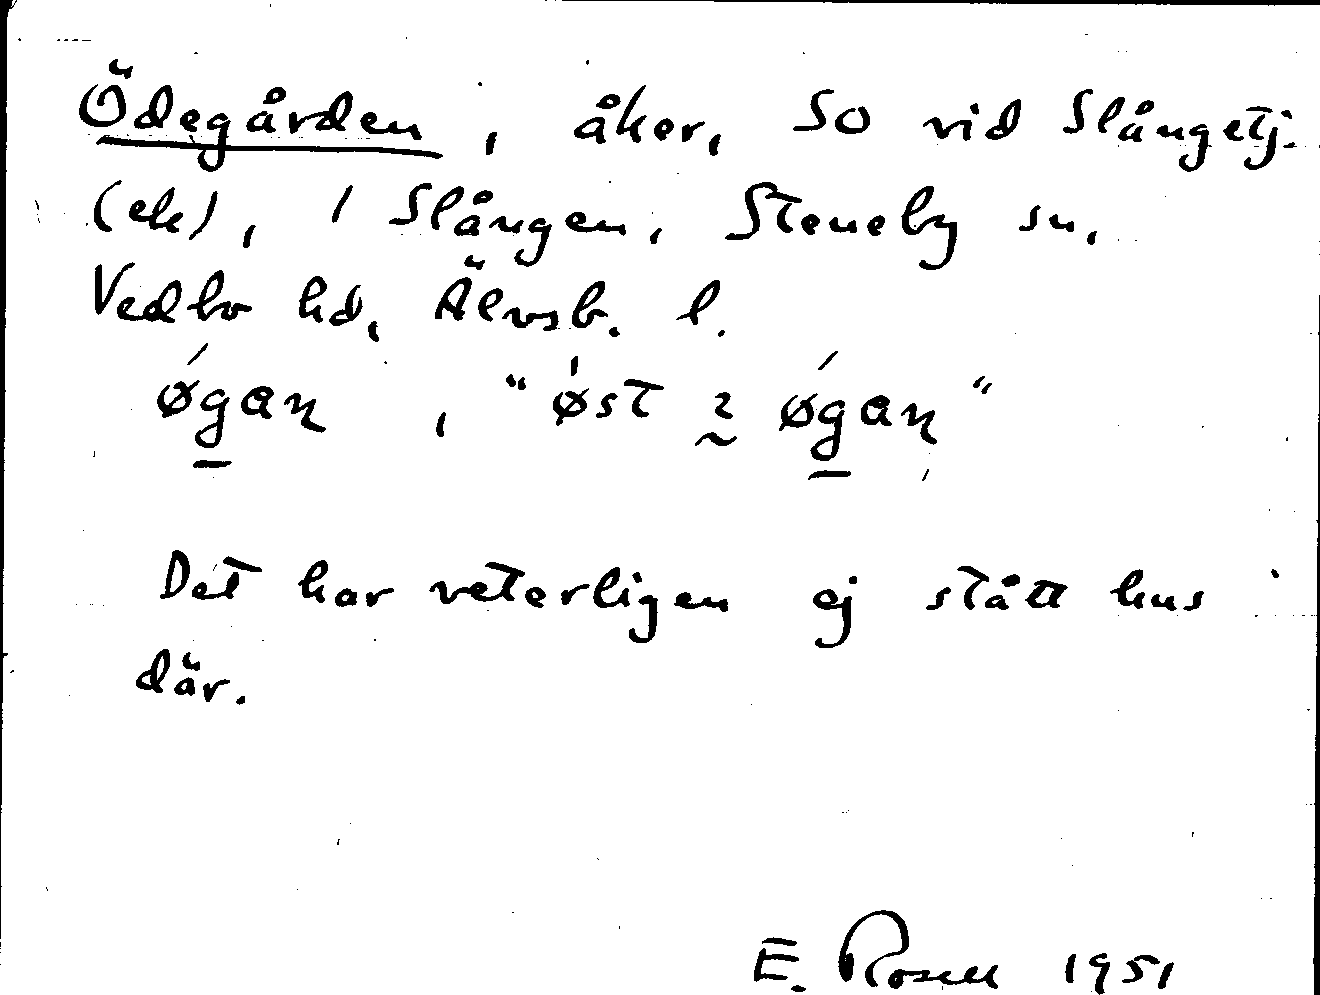 Ödegården, åker, SO vid Slångetj.
(ek), 1 Slången, Steneby sn,
Vedbo hd, Älvsb. l.
øgaɳ, "øst ḭ øgaɳ"
Det har veterligen ej stått hus
där.
E. Rosell 1951